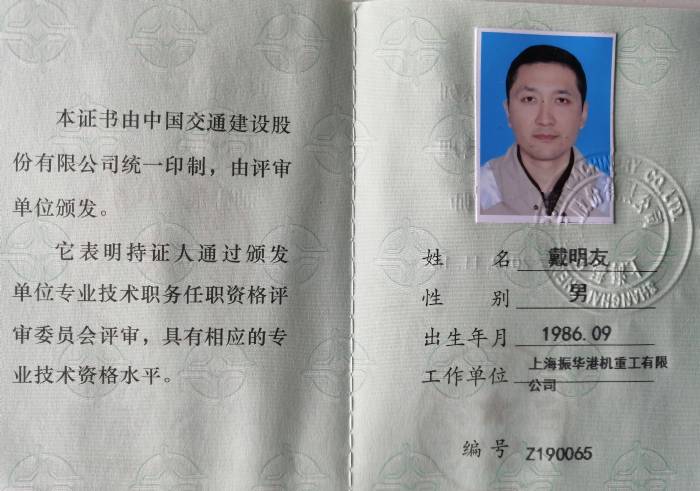 本证书由中国交通建设股
份有限公司统一印制，由评审
单位颁发。
它表明持证人通过颁发
单位专业技术职务任职资格评
审委员会评审，具有相应的专
业技术资格水平。
姓 名 戴明友
性 别 男
出生年月 1986.09
工作单位 上海振华港机重工有限
公司
编号 Z190065